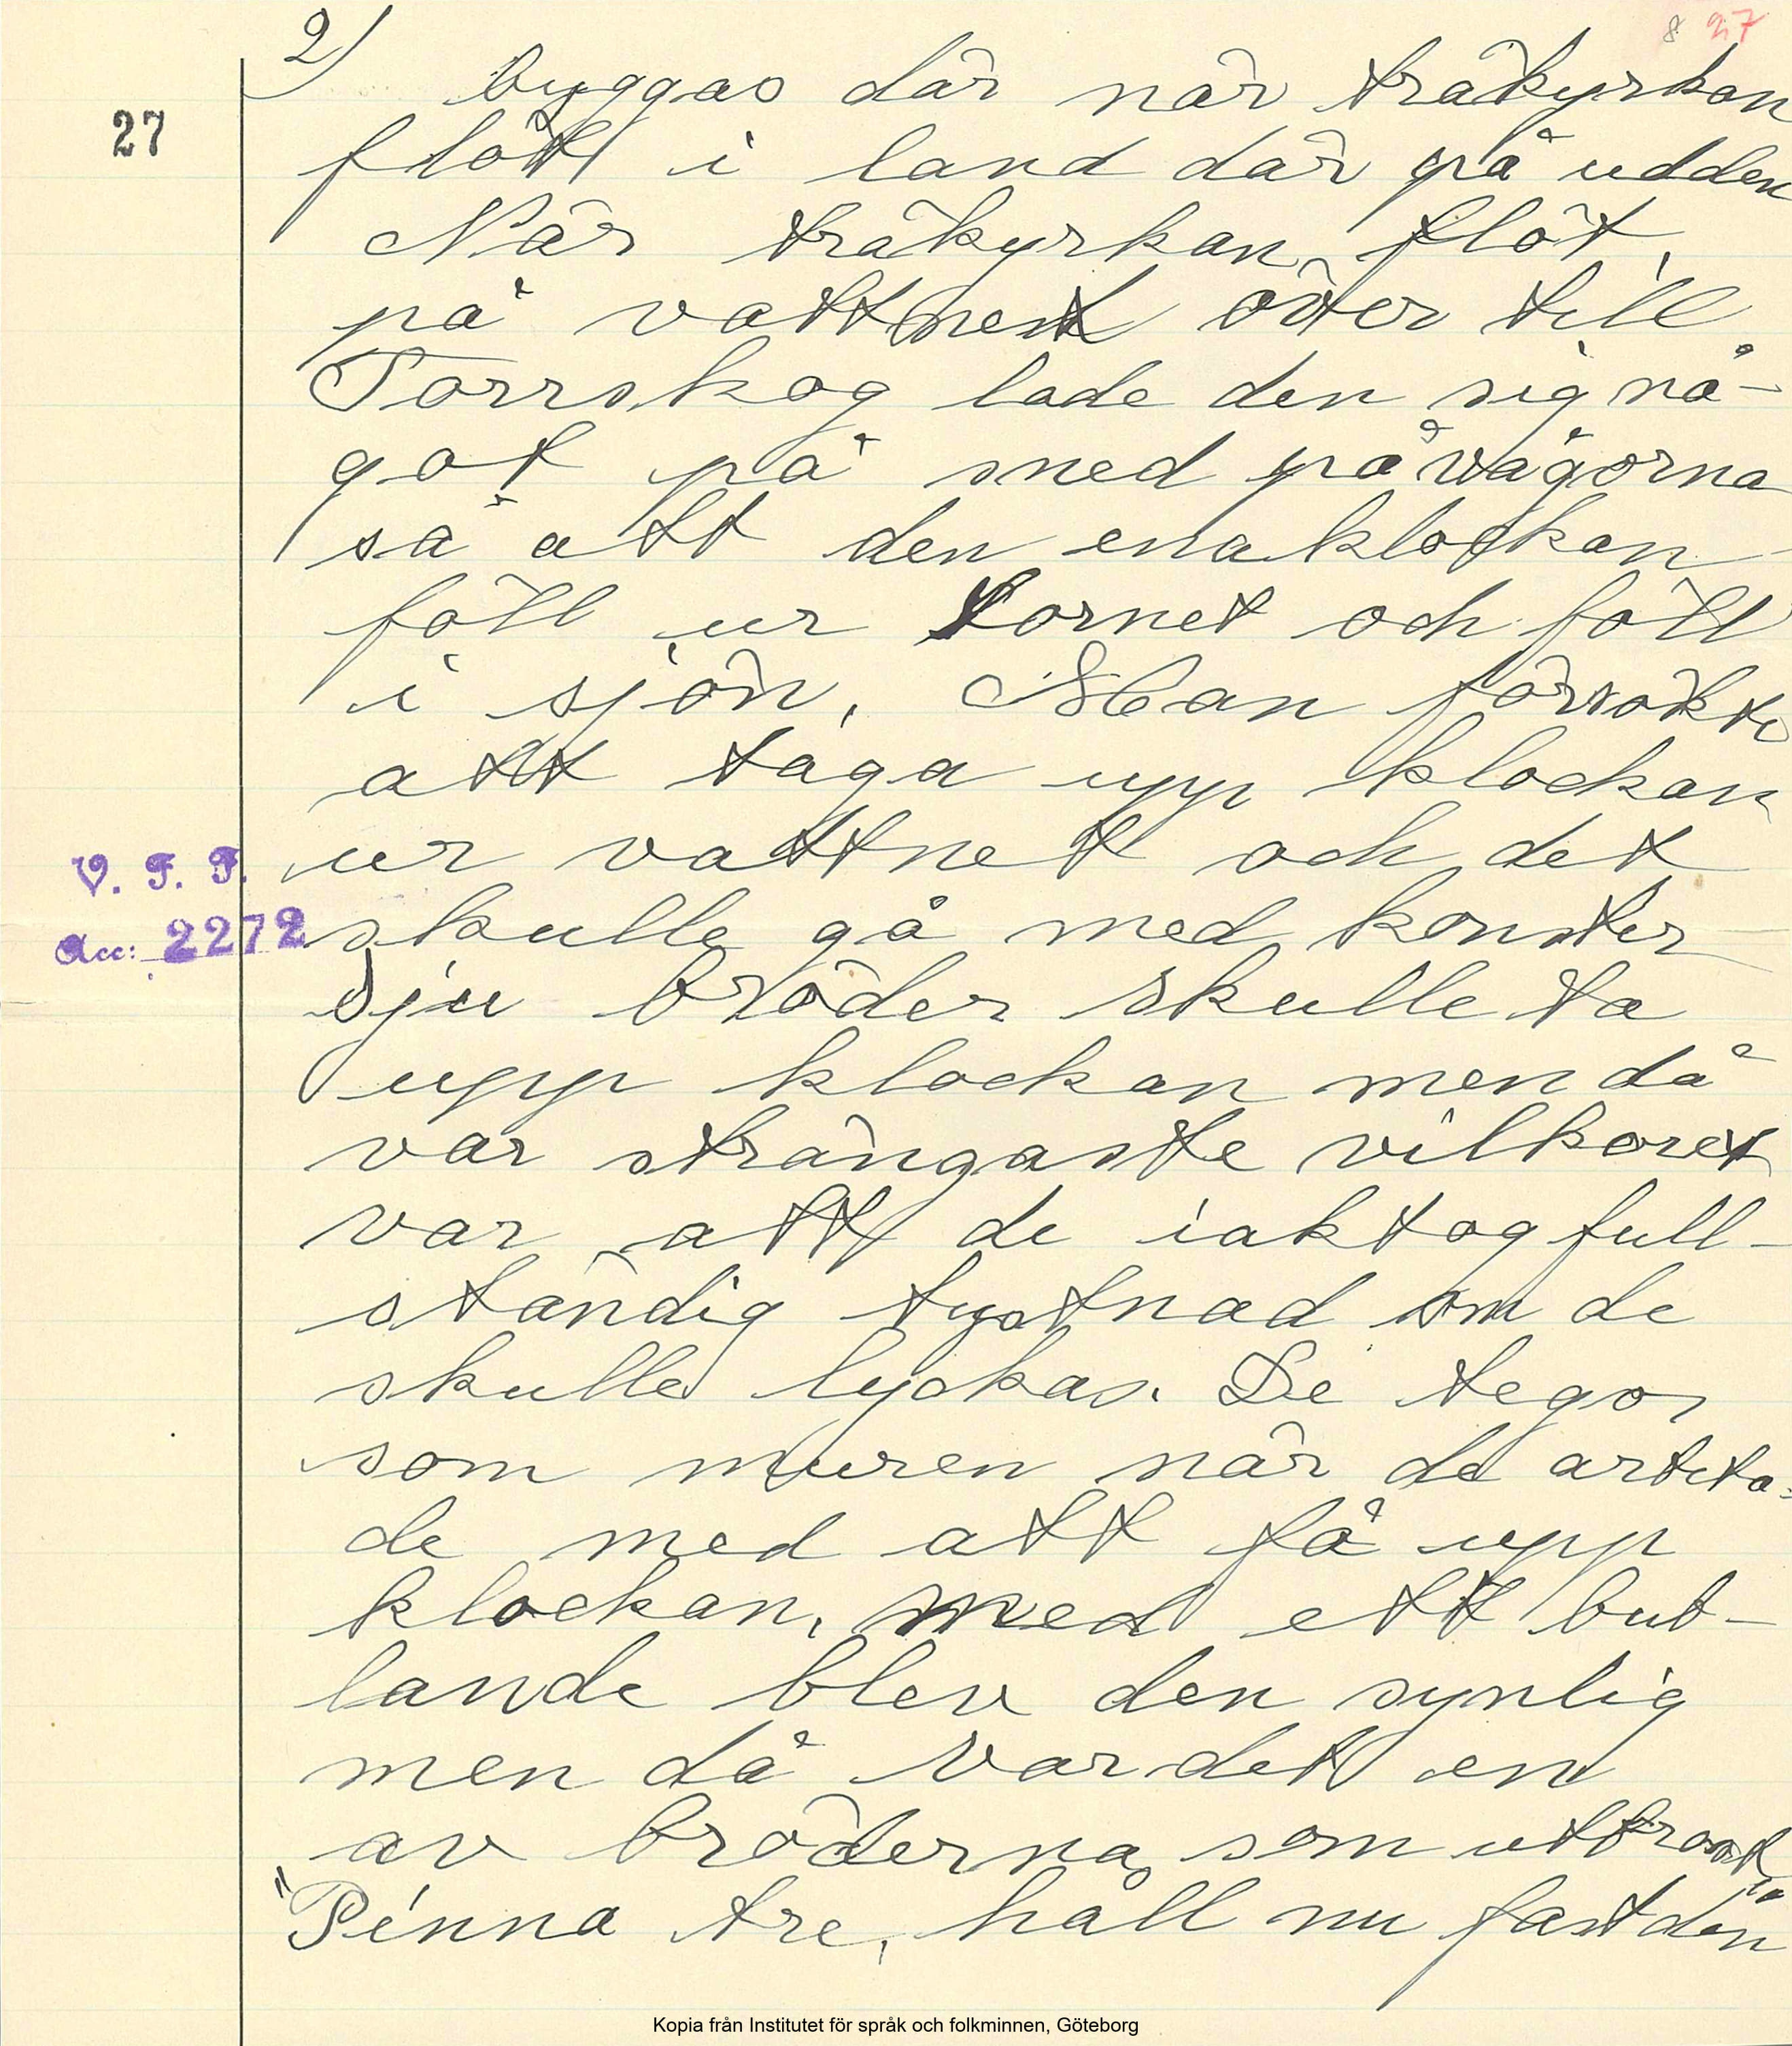 2)
8 27
27
byggas där när träkyrkan
flöt i land där på udden
När träkyrkan flöt,
på vattnet över till
Torrskog lade den sig nå-
got på sned på vågorna
så att den ena klockan
föll ur tornet och föll
i sjön. Man försökte
att taga upp klockan
ur vattnet och det
V. F. F.
skulle gå med konster
Acc: 2272
Sju bröder skulle ta
upp klockan men då
var strängaste vilkoret
var att de iaktog full-
ständig tystnad om de
skulle lyckas. De tego
som muren när de arbeta-
de med att få upp
klockan, med ett bub-
lande blev den synlig
men då var det en
av bröderna som utbrast
"Pinna tre, håll nu fast den"
Kopia från Institutet för språk och folkminnen, Göteborg